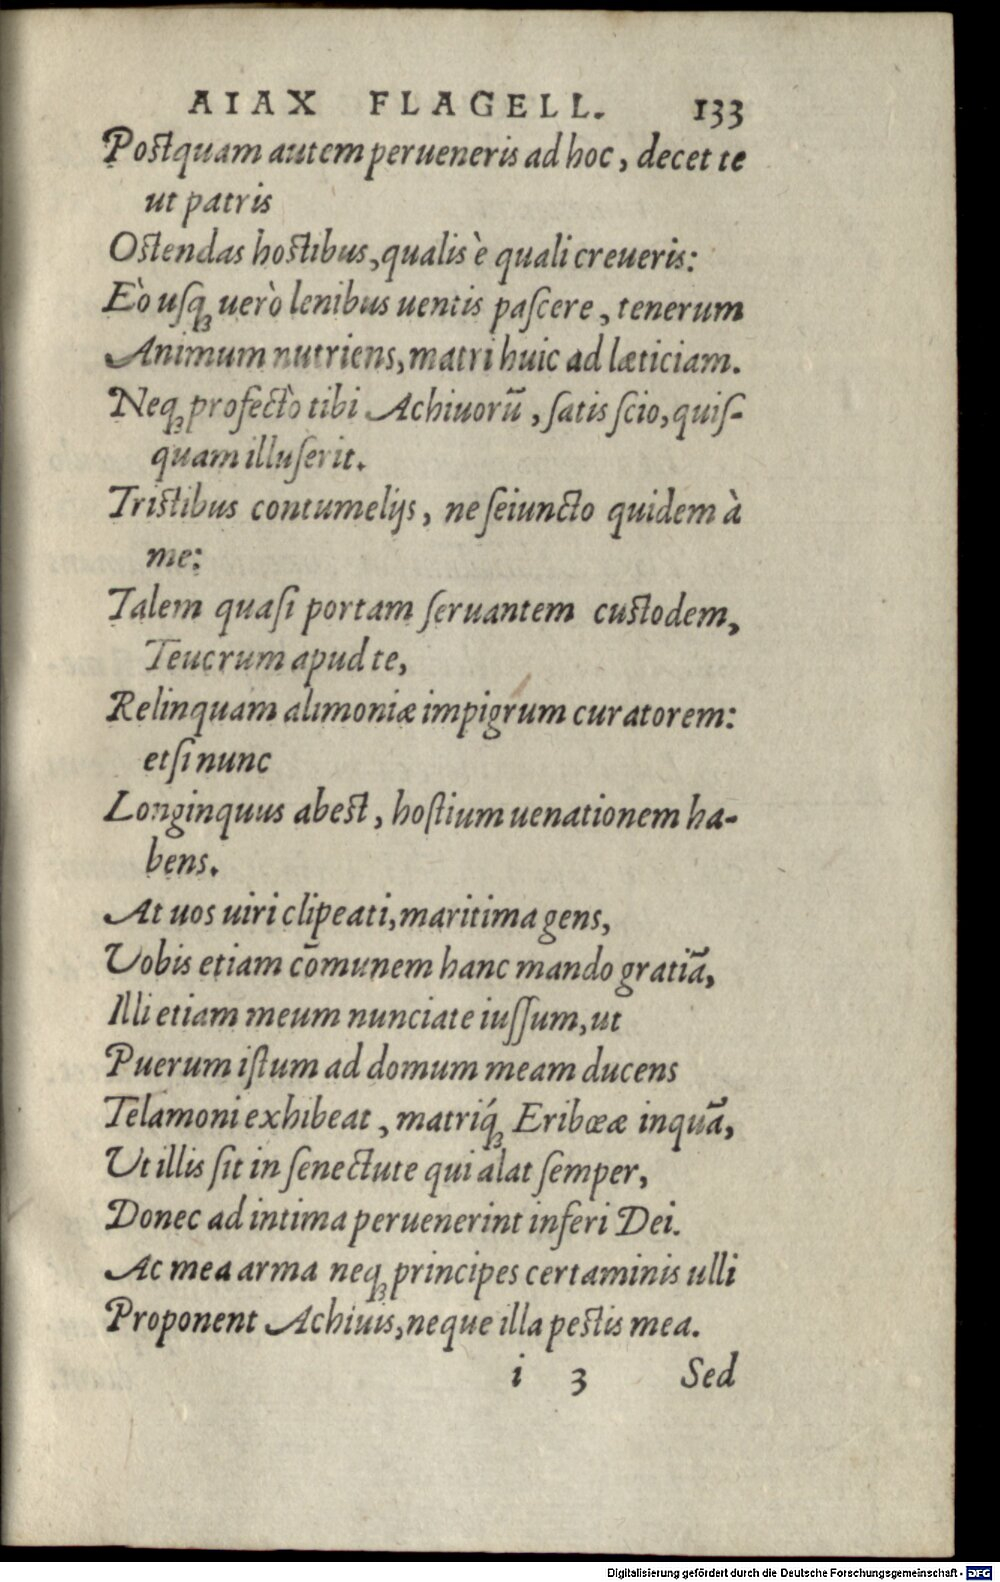 AIAX FLAGELL. 133
Postquam autem perueneris ad hoc, decet te
ut patris
Ostendas hostibus, qualis è quali creueris:
Eò uſq́ꝫ uerò lenibus uentis paſcere, tenerum
Animum nutriens, matri huic ad læticiam.
Neqꝫ profectò tibi Achiuorũ, ſatis ſcio, quiſ-
quam illuſerit.
Tristibus contumelijs, ne ſeiuncto quidem à
me:
Talem quaſi portam ſeruantem custodem,
Teucrum apud te,
Relinquam alimoniæ impigrum curatorem:
etſi nunc
Longinquus abest, hoſtium uenationem ha-
bens.
At uos uiri clipeati, maritima gens,
Vobis etiam cõmunem hanc mando gratiã,
Illi etiam meum nunciate iuſſum, ut
Puerum iſtum ad domum meam ducens
Telamoni exhibeat, matriq́ꝫ Eribœæ inquã,
Vt illis ſit in ſenectute qui alat ſemper,
Donec ad intima peruenerint inferi Dei.
Ac mea arma neqꝫ principes certaminis ulli
Proponent Achiuis, neque illa pestis mea.
i 3 Sed
Digitalisierung gefördert durch die Deutsche Forschungsgemeinschaft - DFG